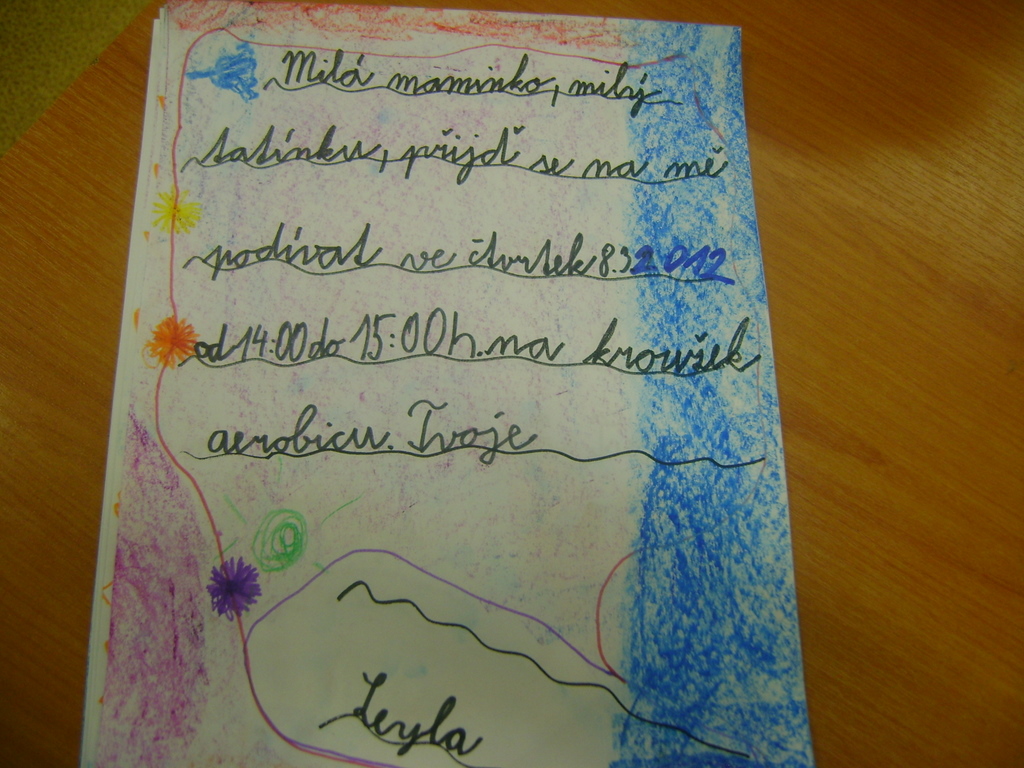 Milá maminko, milý
tatínku, přijď se na mě
podívat ve čtvrtek 8.3.2012
od 14:00 do 15:00 h. na kroužek
aerobicu. Tvoje
Leyla